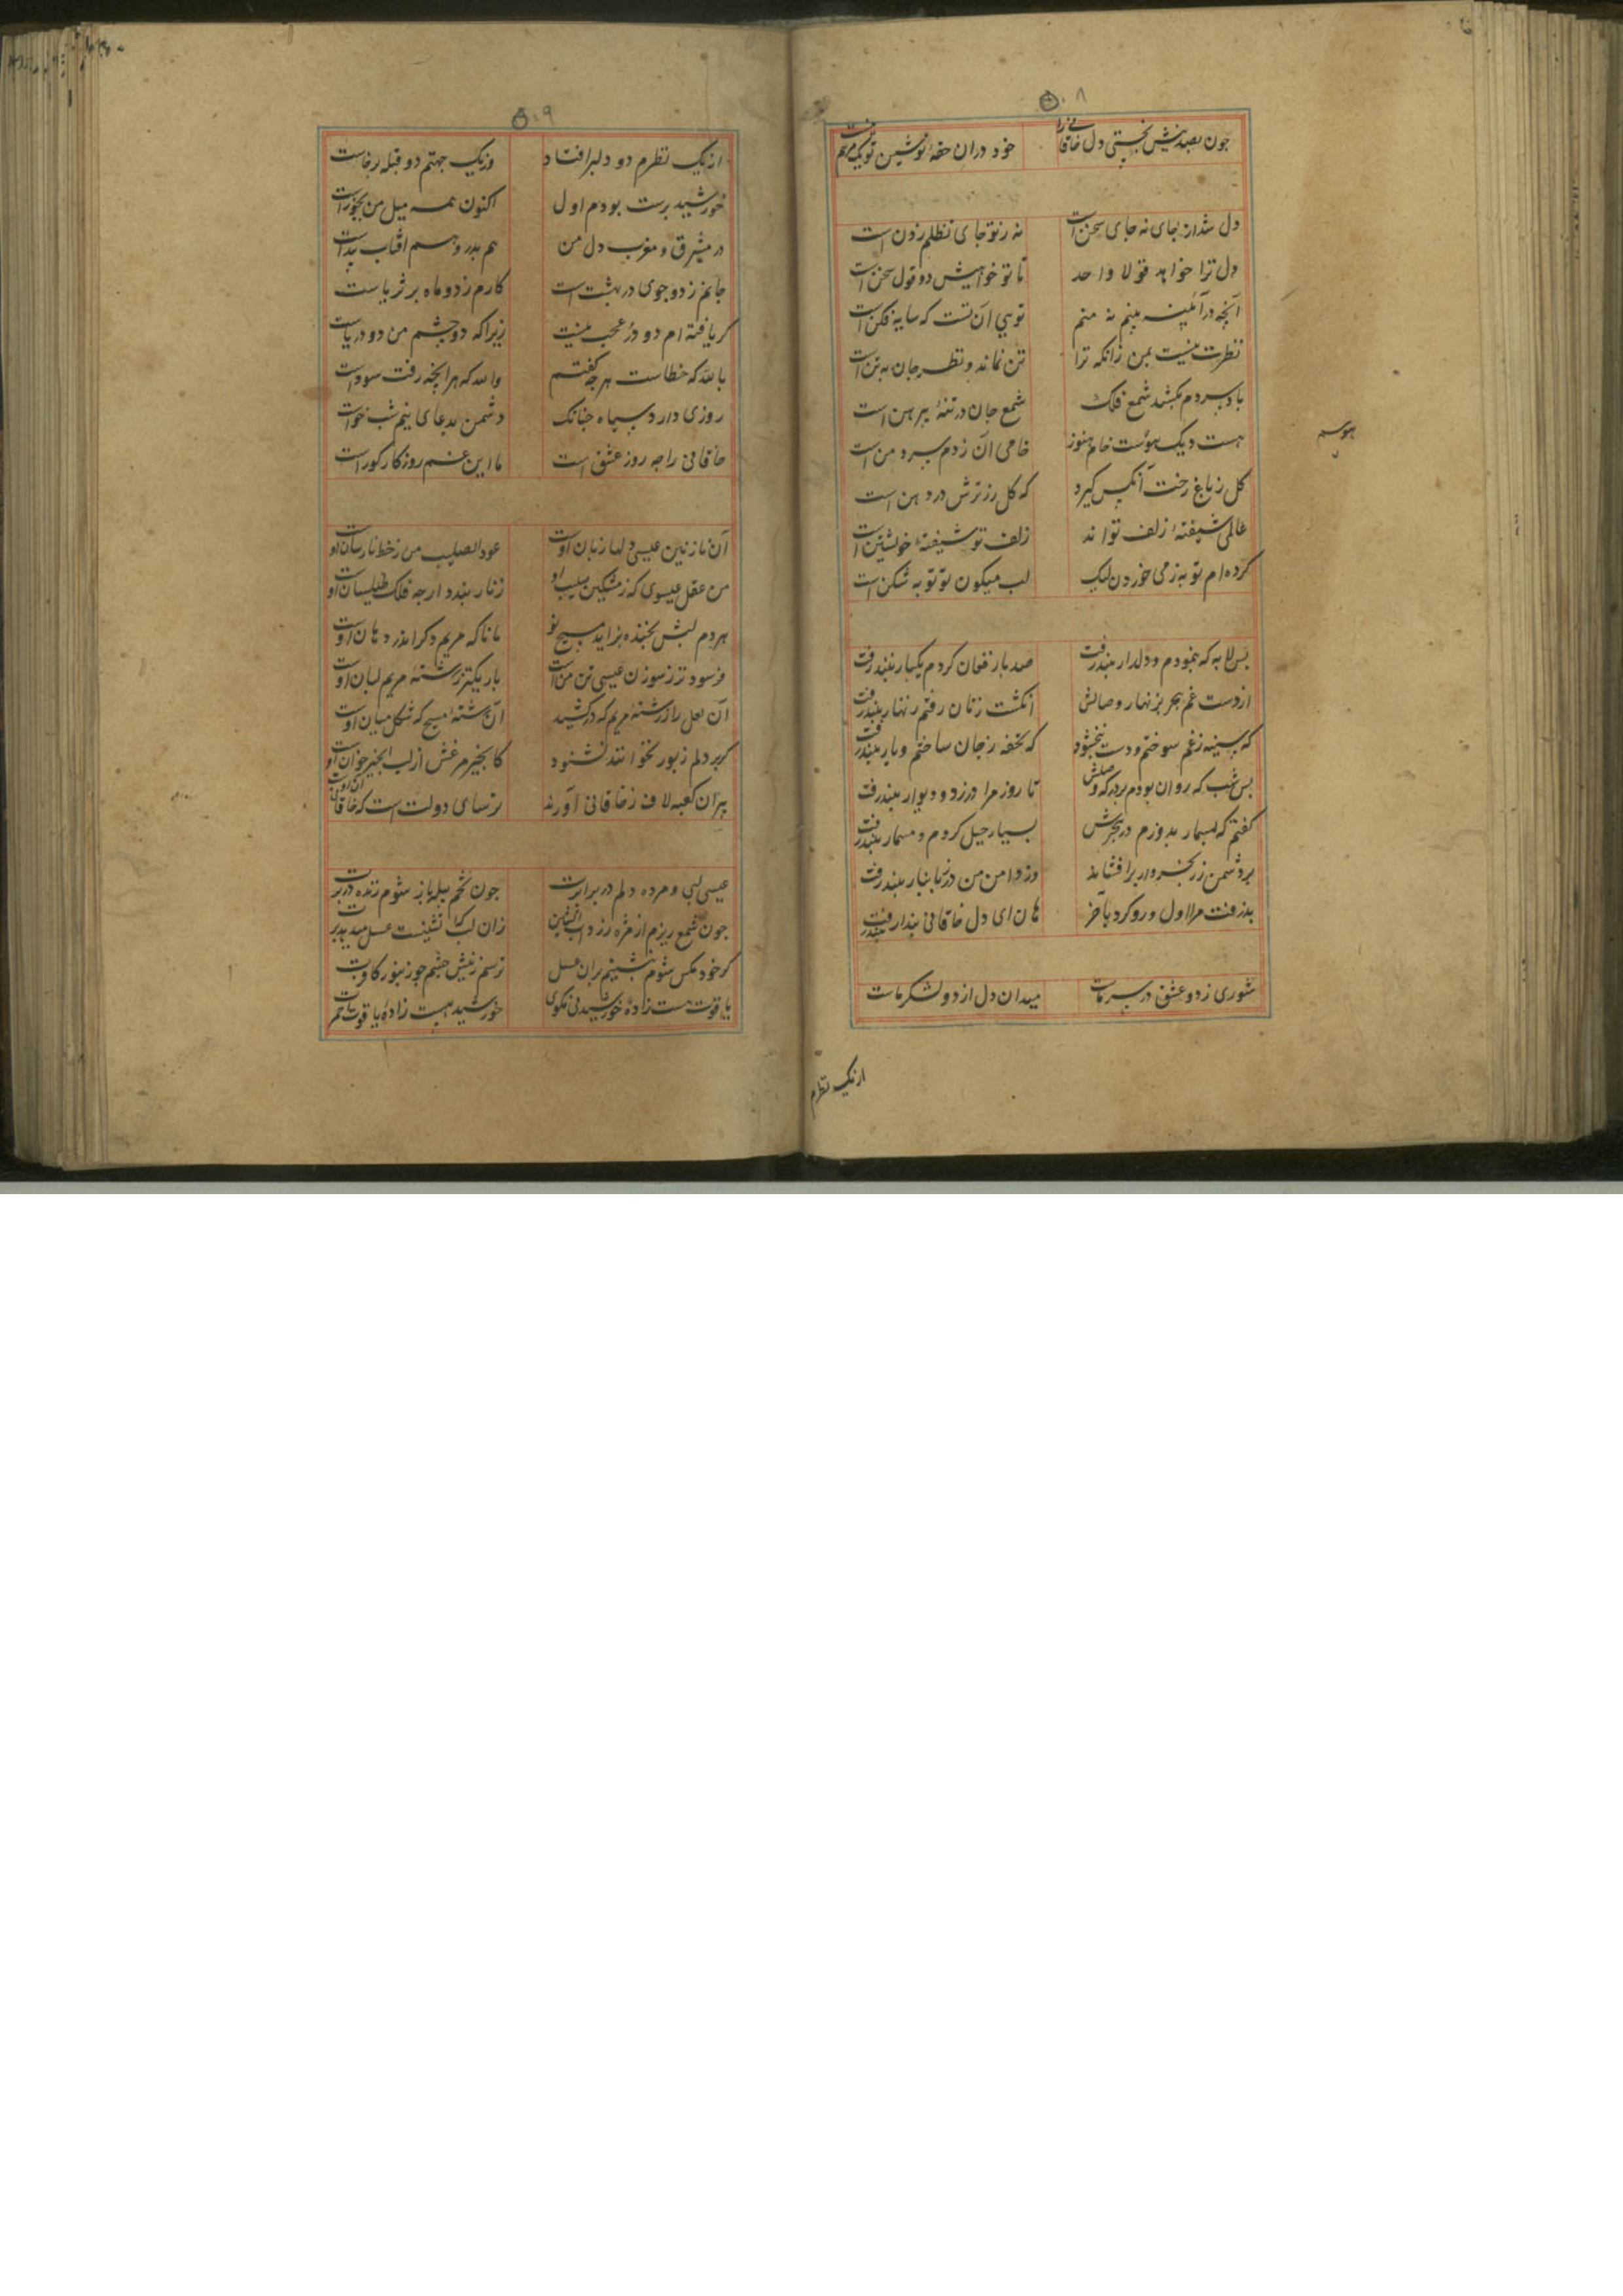 ۵۰۸
چون بصد نیش بخستی دل خاقانی را خود در آن حقهٔ نوشین تو یک مرهم نیست
دل شد از جای نه جای سخن است نه ز تو جای تظلم زدن است
دل ترا خواهد قولا واحد تا تو خواهیش دو قول سخن است
آنچه در آئینه بینم نه منم توئی آن تست که سایه فکن است
نظرت نیست بمن زانکه ترا تن نماند و نظر جان به تن است
باد سردم بکشد شمع فلک شمع جان در تنهٔ پیرهن است
هست دیک هوست خام هنوز خامی آن ز دم سرد من است
کل ز باغ رخت آنکس کیرد که کل رز ترش در دهن است
عالمی شیفتهٔ زلف تواند زلف تو شیفتهٔ خویشتن است
کرده‌ام توبه ز می خوردن لیک لب میکون تو توبه شکن است
هوسه
بس لابه که بنمودم و دلدار نپذرفت صد بار فغان کردم یکبار نپذرفت
از دست غم هجر بزنهار وصالش انکشت زنان رفتم زنهار نپذرفت
که سینه ز غم سوختم و دست نبخشود که تحفه ز جان ساختم و یار نپذرفت
بس شب که روان بودم بر درکه وصلش تا روز مرا در زد و دیوار نپذرفت
کفتم که بمسمار بدوزم در هجرش بسیار حیل کردم و مسمار نپذرفت
بر دشمن زر خسرو وار برافشاند وز دامن من در بانبار نپذرفت
پذرفت مرا اول و رو کرد بآخر هان ای دل خاقانی پندار نپذرفت
شوری ز دو عشق در سر ماست میدان دل از دو لشکر ماست
از یک نظرم
۵۰۹
از یک نظرم دو دلبر افتاد وز یک جهتم دو قبله برخاست
خورشید پرست بودم اول اکنون همه میل من بجوزاست
در مشرق و مغرب دل من هم بدر و هم آفتاب پیداست
جانم ز دو جوی در بهشت است کارم ز دو ماه بر ثریاست
کر یافته‌ام دو در عجب نیست زیرا که دو چشم من دو دریاست
بالله که خطاست هر چه کفتم والله که هر آنچه رفت سوداست
روزی دارد سیاه چنانک دشمن بدعای نیم شب خواست
خاقانی را چه روز عشق است با این غم روزکار کوراست
آن نازنین عیسی دلها زبان اوست عود الصلیب من ز خط نارسان اوست
من عقل عیسوی که ز مشکین صلیب او زنار بندد ار چه فلک طیلسان اوست
هر دم لبش بخنده بزاید مسیح نو مانا که مریم دکر اندر دهان اوست
فرسوده‌تر ز سوزن عیسی تن من است باریکتر ز رشتهٔ مریم لبان اوست
آن لعل را ز رشتهٔ مریم که درکشید آن رشتهٔ مسیح که شکل میان اوست
کر بر دلم زبور بخوانند نشنود کانجیر مرغش از لب انجیر خوان اوست
پیران کعبه لاف ز خاقانی آورند ترسای دولت است که خاقانی آن اوست
عیسی لبی و مرده دلم در برابرت چون تخم پیله باز شوم زنده در برت
چون شمع ریزم از مژه زر دآب آتشین زان لب که آتشینست عسل میدهد برت
کر خود مکس شوم ننشینم بران عسل ترسم ز نیش چشم چو زنبور کافرت
یاقوت هست زادهٔ خورشید نی مکوی خورشید هست زادهٔ یاقوت احمرت